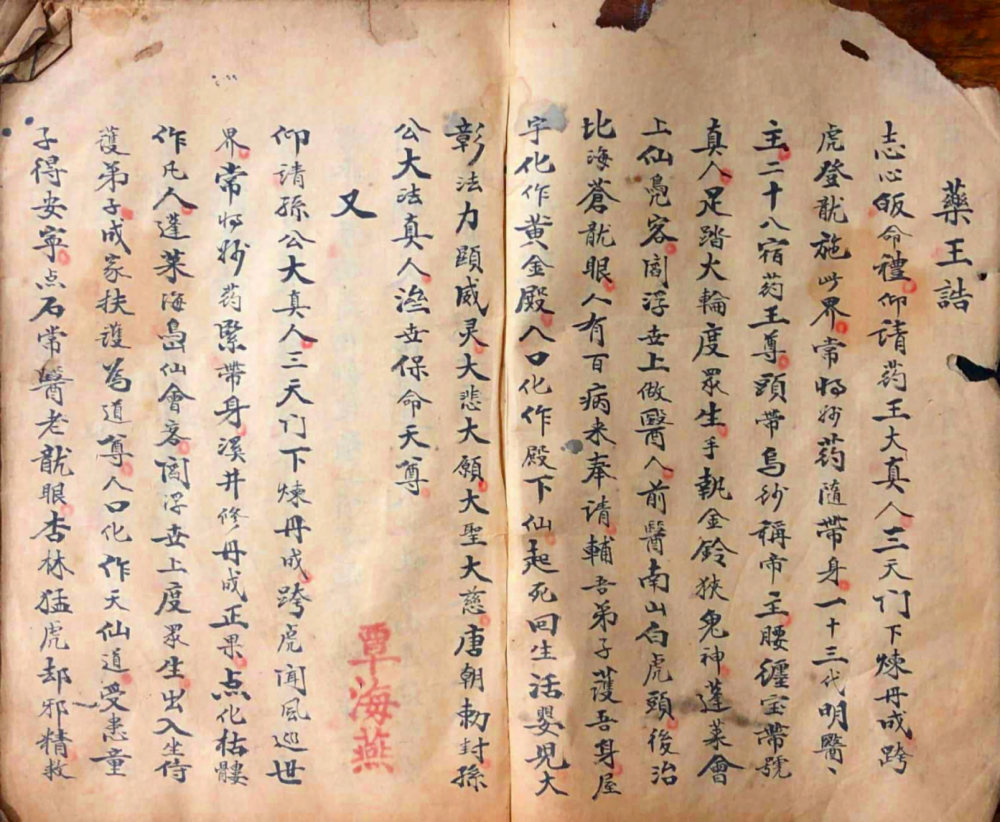 藥王誥
志心皈命禮仰请药王大真人三天门下煉丹成跨
虎登龍施此界常将妙药随帶身一十三代明醫、
主二十八宿药王尊頭帶烏纱稱帝主腰纏宝帶號
真人足踏大輪度眾生手執金鈴狹鬼神蓬莱會
上仙凫客阎浮世上做醫人前醫南山白虎頭後治
比海蒼龍眼人有百病来奉请輔吾弟子護吾身屋
宇化作黄金殿人口化作殿下仙起死回生活嬰児大
彰法力顕威灵大悲大願大聖大慈唐朝勅封孫
公大法真人濟世保命天尊
又
仰請孫公大真人三天门下煉丹成跨虎闻風巡世
界常将妙药緊帶身溪井修丹成正果点化枯髏
作凡人蓬莱海島仙會客阎浮世上度眾生出入坐侍
護弟子成家扶護為道尊人口化作天仙道受患童
子得安寧点石常醫老龍眼杏林猛虎却邪精救
覃海燕